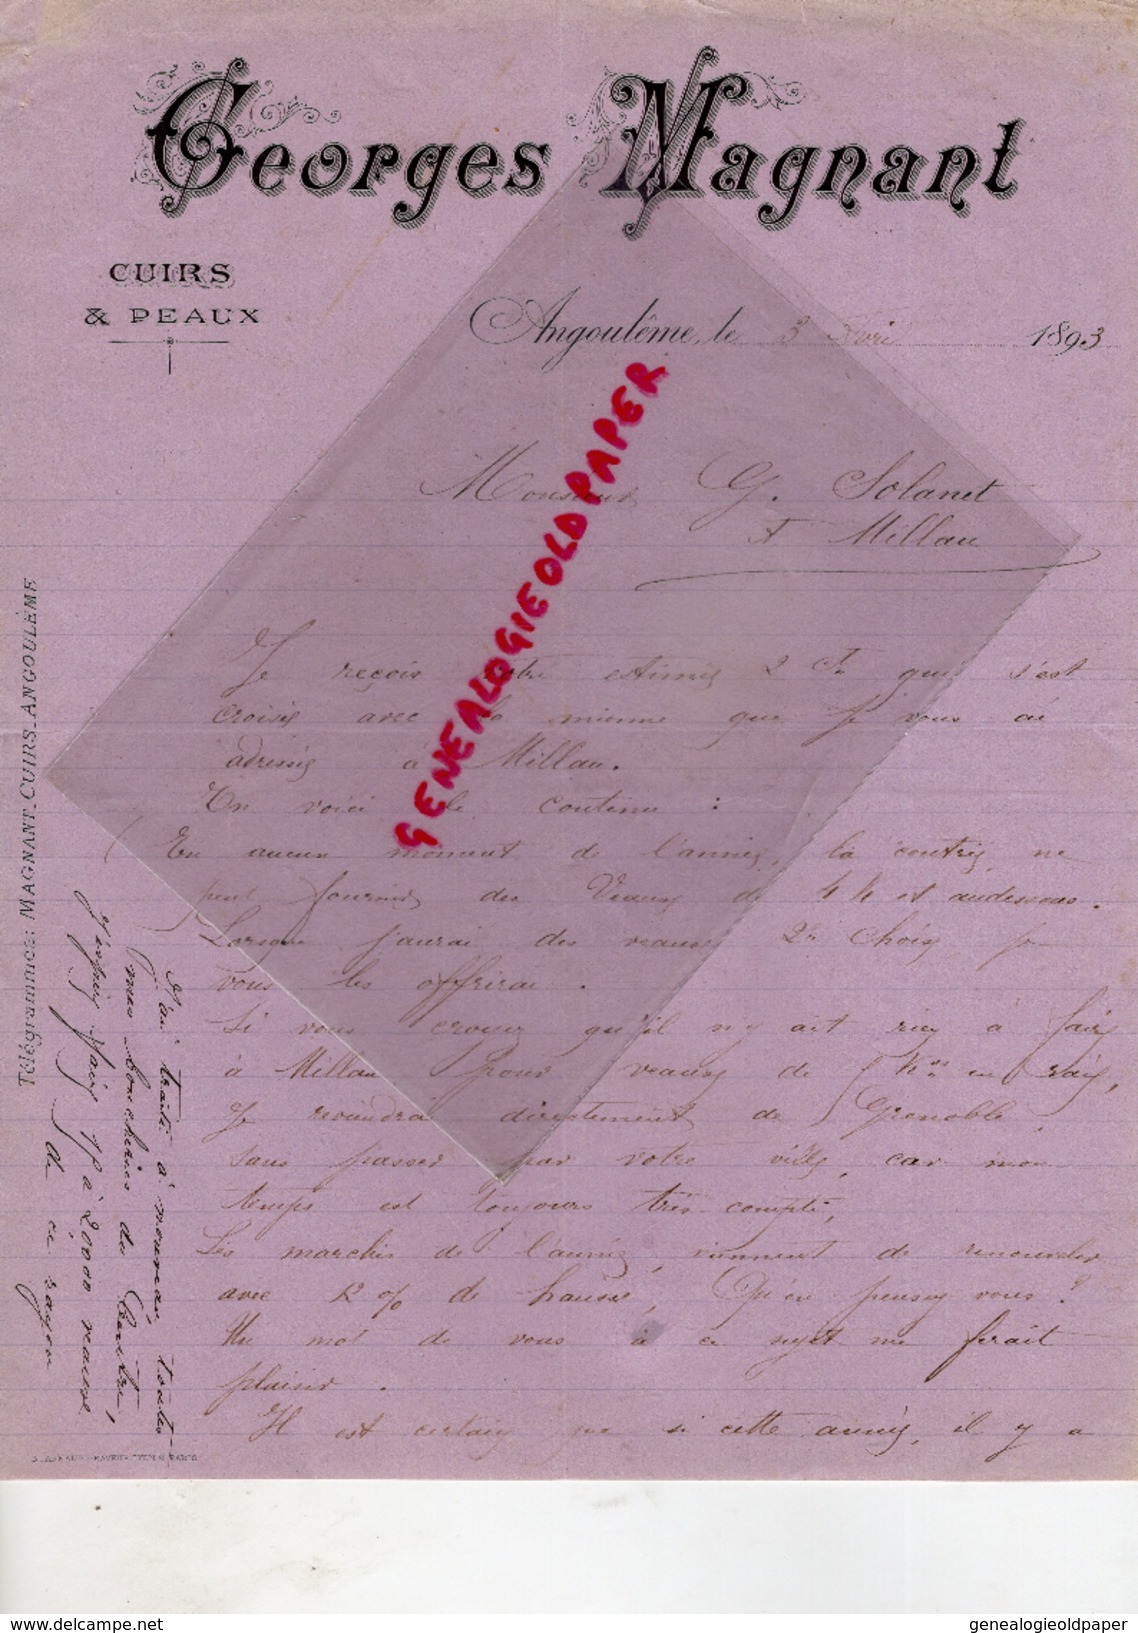 Georges Magnant
CUIRS
& PEAUX
Angoulême, le 3 Avril 1893
Monsieur G. Solanet
à Millau
Je reçois votre estimée 2 ct qui s'est
croisée avec la mienne que je vous ai
adressée à Millau.
En voici le contenu :
En aucun moment de l'année, la contrée ne
peut fournir des Veaux de 4 k et audessous.
Lorsque j'aurai des veaux 2e Choix je
vous les offrirai.
Si vous croyez qu'il n'y ait rien à faire
à Millau pour veaux de en
Je reviendrai directement de Grenoble,
sans passer par votre ville, car mon
temps est toujours très compté,
Les marchés de l'année, viennent de renouveler
avec 12 % de hausse, Qu'en pensez vous ?
Un mot de vous à ce sujet me ferait
plaisir.
Il est certain que si cette année, il y a
J'ai traité à nouveau, toutes
mes boucheries du Centre,
J'espère faire à 2,000 veaux
de ce rayon
Télégrammes: MAGNANT_CUIRS_ANGOULÊME
GENEALOGIEOLDPAPER
genealogieoldpaper